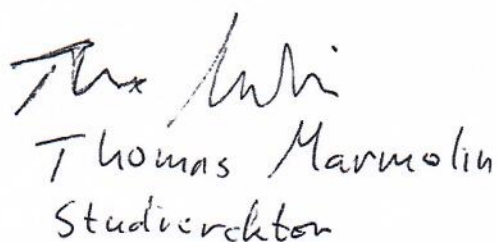 Thomas Marmolin
Studierektor